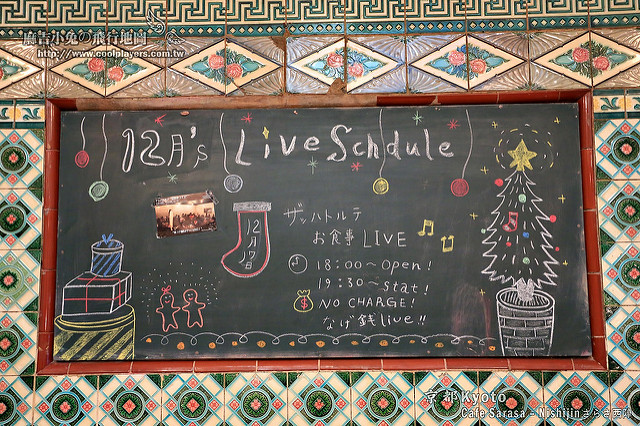 廣告小兔の飛行地圖
http://www.coolplayers.com.tw
12月's Live Schdule
ザッハトルテ
お食事 LIVE
12月17日
18:00〜Open!
19:30〜stat!
$ NO CHARGE!
なげ銭live!!
京都Kyoto
Cafe Sarasa - Nishijinさらさ西陣